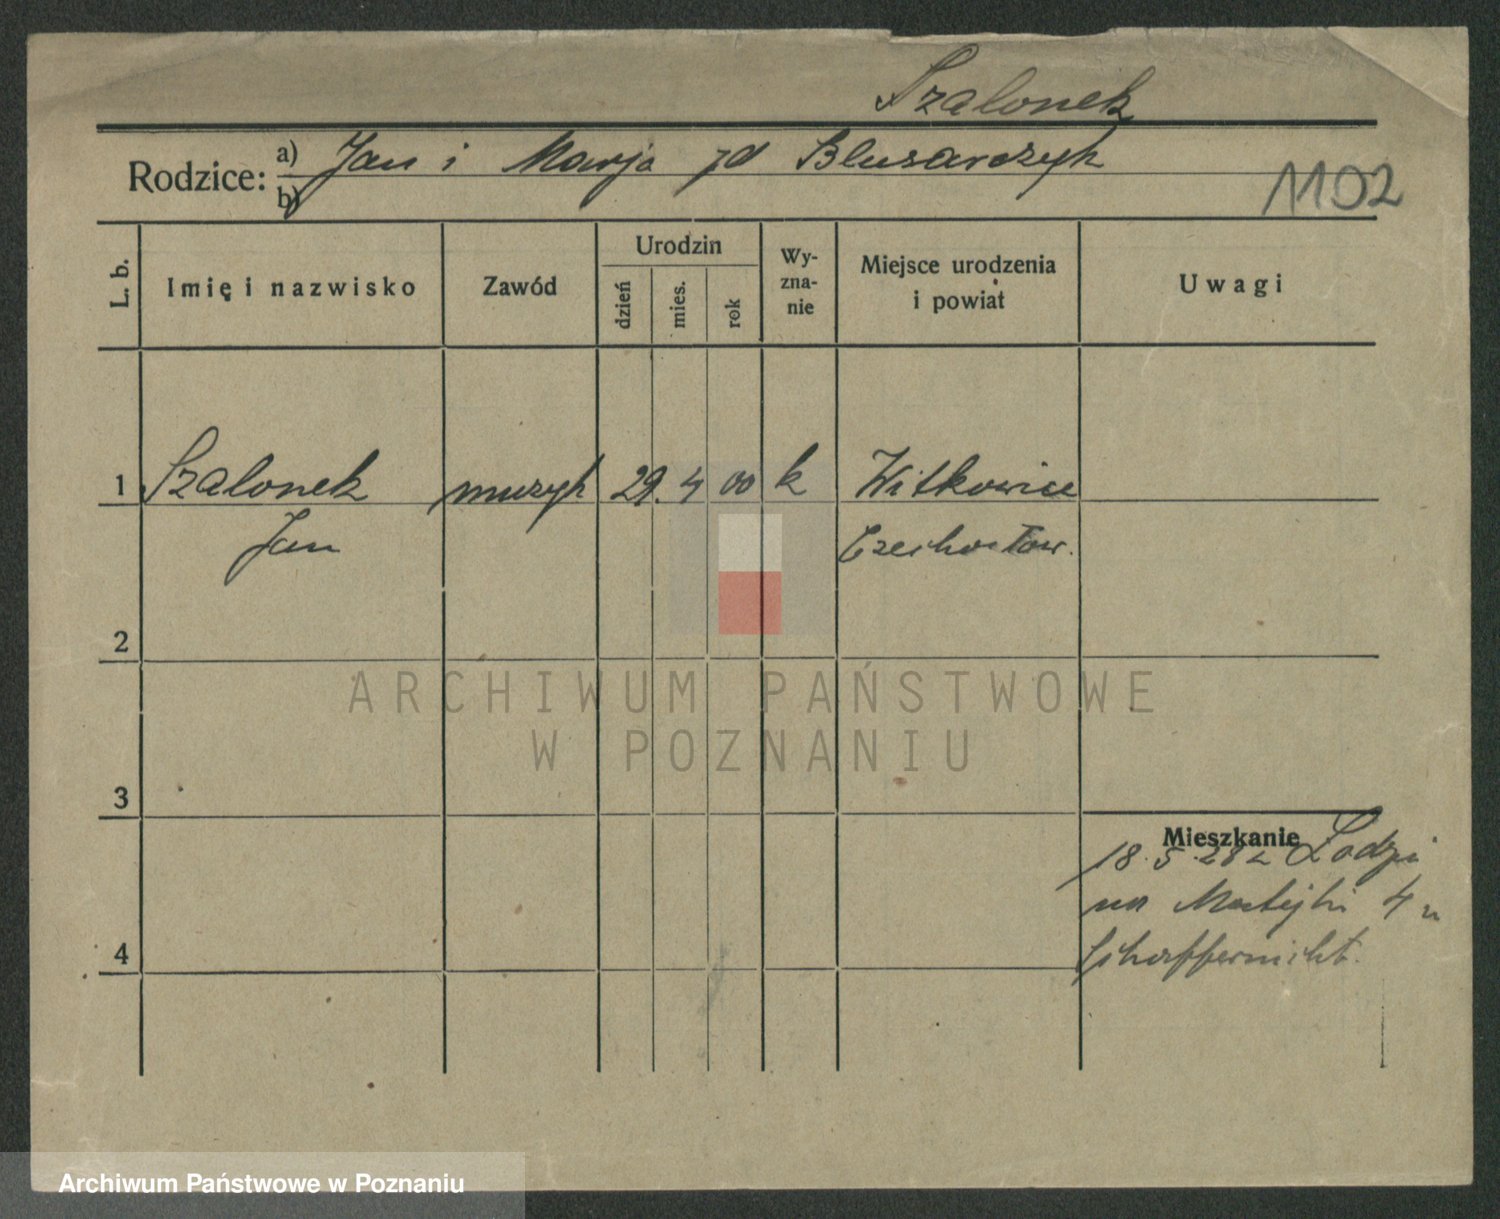 Szalonek
Rodzice: a) Jan i Marja zd Blusarczyk
b)
1102
L. b.
Imię i nazwisko
Zawód
Urodzin
dzień
mies.
rok
Wy-
zna-
nie
Miejsce urodzenia
i powiat
Uwagi
1 Szalonek muzyk 29. 4 00 k Witkowice
Jan Czechosłow.
2
ARCHIWUM PAŃSTWOWE
W POZNANIU
3
Mieszkanie
18.5.28 z Łodzi
na Matejki 4 u
4
Archiwum Państwowe w Poznaniu